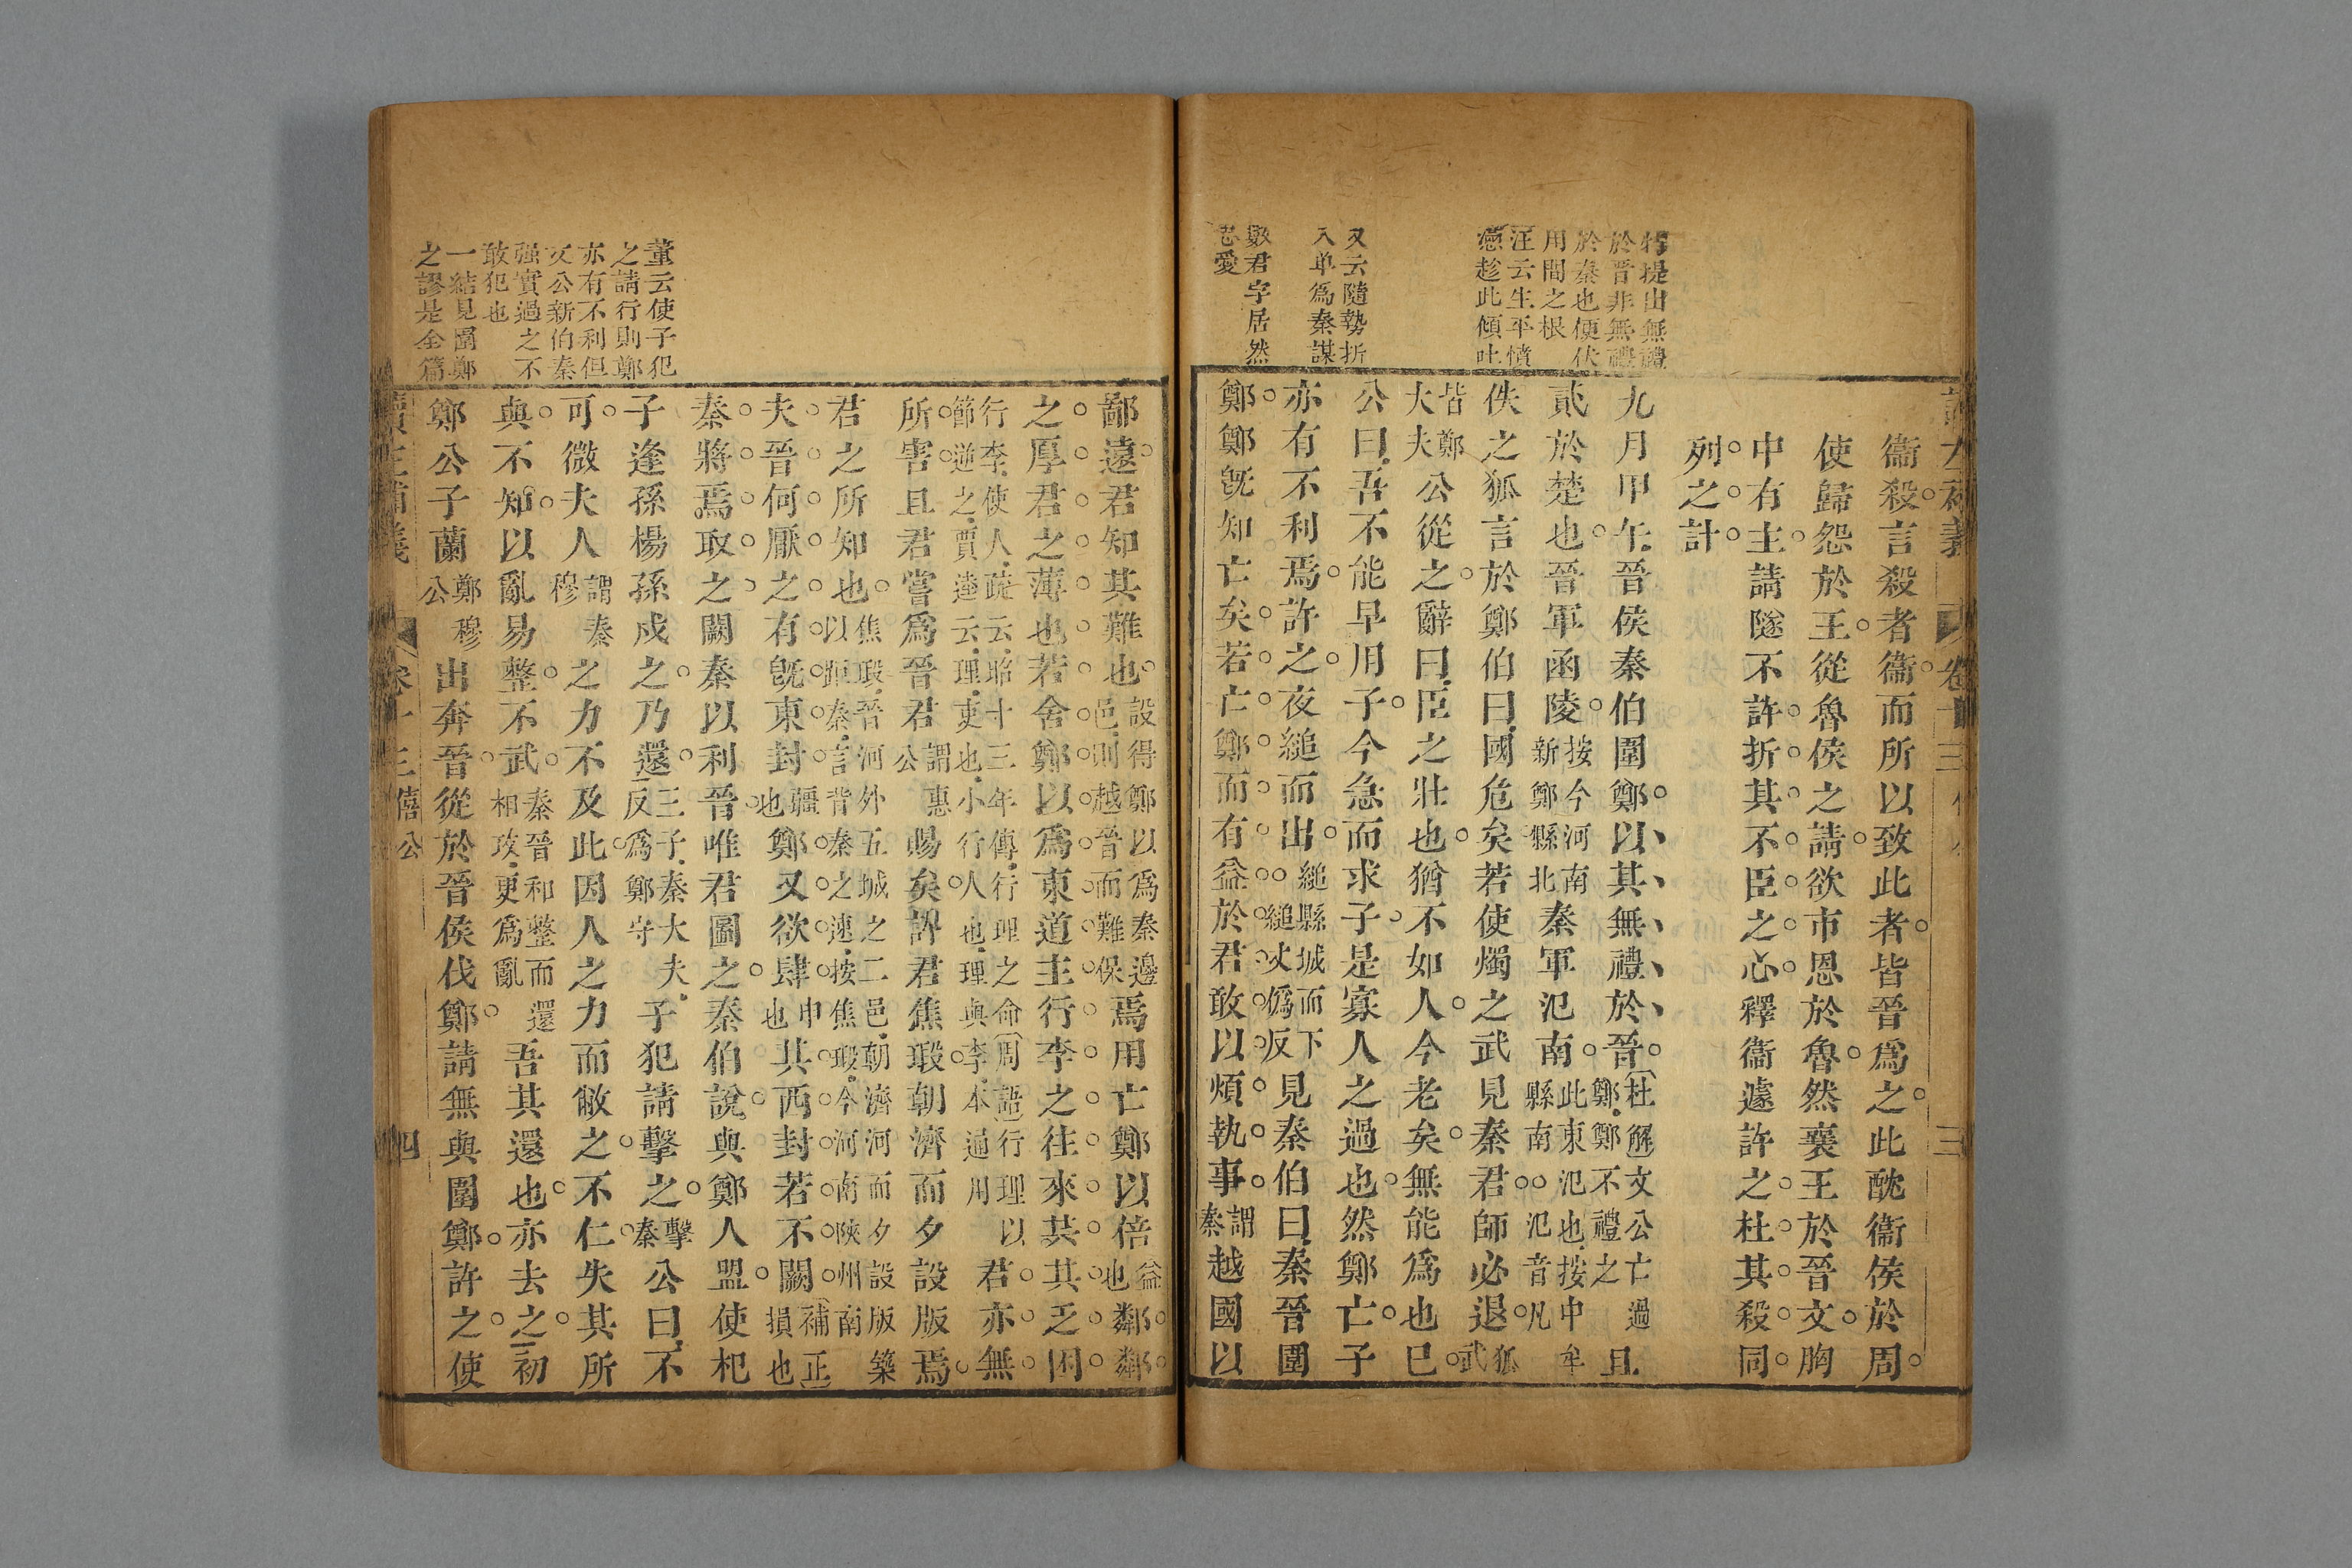 特提出無禮
於晉非無禮
於秦也便伏
用間之根
汪云生平憤
懣趁此傾吐
又云隨勢折
入单爲秦謀
數君字居然
忠愛
衞殺言殺者衞而所以致此者皆晉爲之此酖衞侯於周
使歸怨於王從魯侯之請欲市恩於魯然襄王於晉文胸
中有主請隧不許折其不臣之心釋衞遽許之杜其殺同
列之計
九月甲午晉侯秦伯圍鄭以其無禮於晉杜解文公亡過鄭鄭不禮之且
貳於楚也晉軍函陵按今河南新鄭縣北秦軍氾南此東氾也按中牟縣南○氾音凡
佚之狐言於鄭伯曰國危矣若使燭之武見秦君師必退狐武
皆鄭大夫公從之辭曰臣之壯也猶不如人今老矣無能爲也巳
公曰吾不能早用子今急而求子是寡人之過也然鄭亡子
亦有不利焉許之夜縋而出縋縣城而下○縋丈僞反見秦伯曰秦晉圍
鄭鄭旣知亡矣若亡鄭而有益於君敢以煩執事謂秦越國以
董云使子犯
之請行則鄭
亦有不利但
文公新伯秦
强實過之不
敢犯也
一結見圍鄭
之謬是全篇
鄙遠君知其難也設得鄭以爲秦邊邑則越晉而難保焉用亡鄭以倍益也鄰鄰
之厚君之薄也若舍鄭以爲東道主行李之往來共其乏困
行李使人疏云昭十三年傳行理之命周語行理以節逆之賈逵云理吏也小行人也理與李本通用君亦無
所害且君嘗爲晉君謂惠公賜矣許君焦瑕朝濟而夕設版焉
君之所知也焦瑕晉河外五城之二邑朝濟河而夕設版築以距秦言背秦之速按焦瑕今河南陝州南
夫晉何厭之有旣東封疆也鄭又欲肆申也其西封若不闕補正損也
秦將焉取之闕秦以利晉唯君圖之秦伯說與鄭人盟使杞
子逢孫楊孫戍之乃還三子秦大夫反爲鄭守子犯請擊之擊秦公曰不
可微夫人謂秦穆之力不及此因人之力而敝之不仁失其所
與不知以亂易整不武秦晉和整而還相攻更爲亂吾其還也亦去之初
鄭公子蘭鄭穆公出奔晉從於晉侯伐鄭請無與圍鄭許之使
讀左補義 卷十三 僖公 四